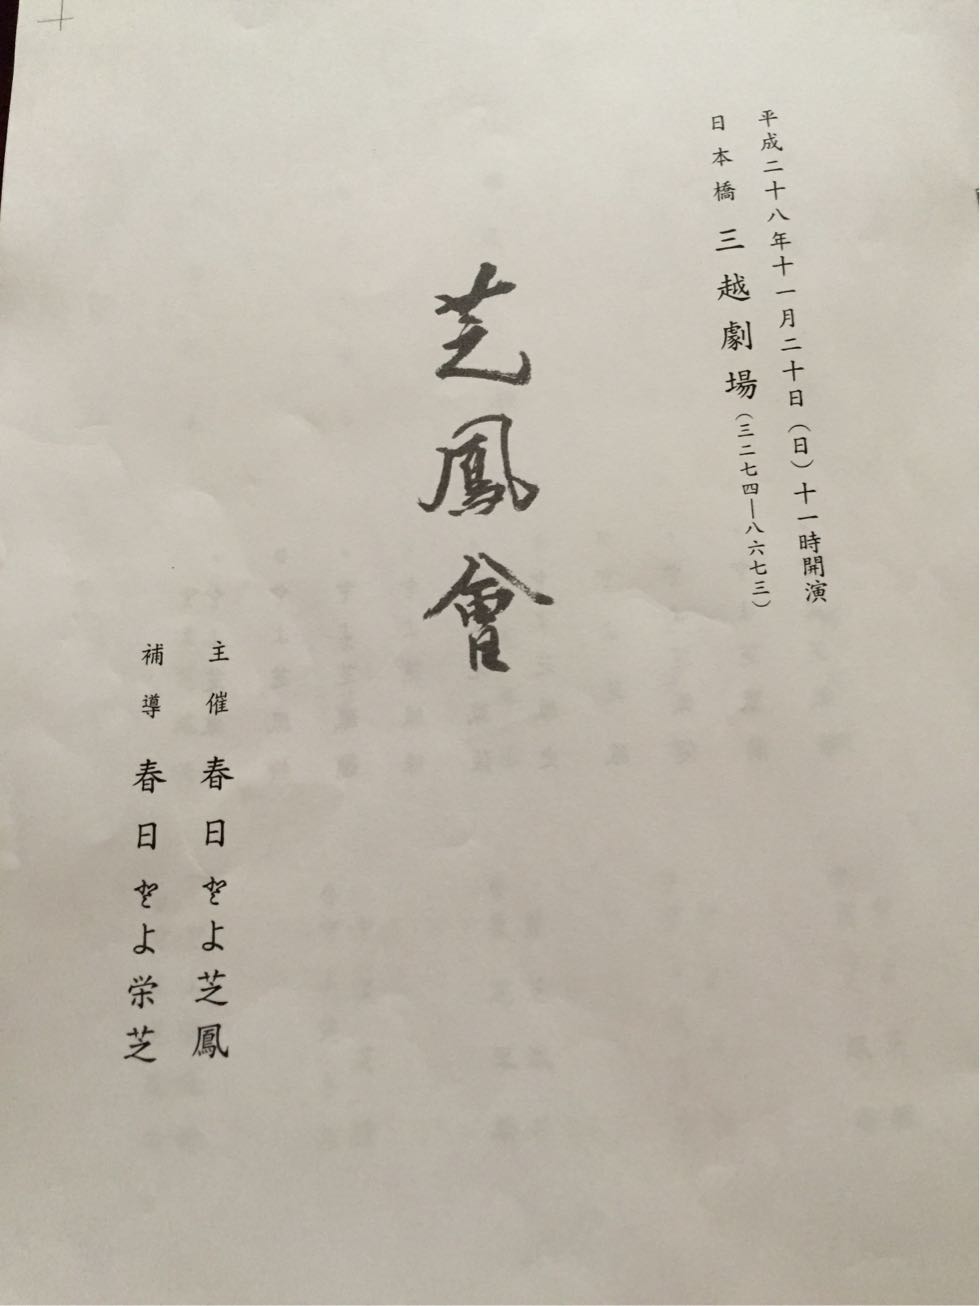 平成二十八年十一月二十日（日）十一時開演
日本橋 三越劇場（三二七四―八六七三）
芝鳳會
主催 春日とよ芝鳳
補導 春日とよ栄芝